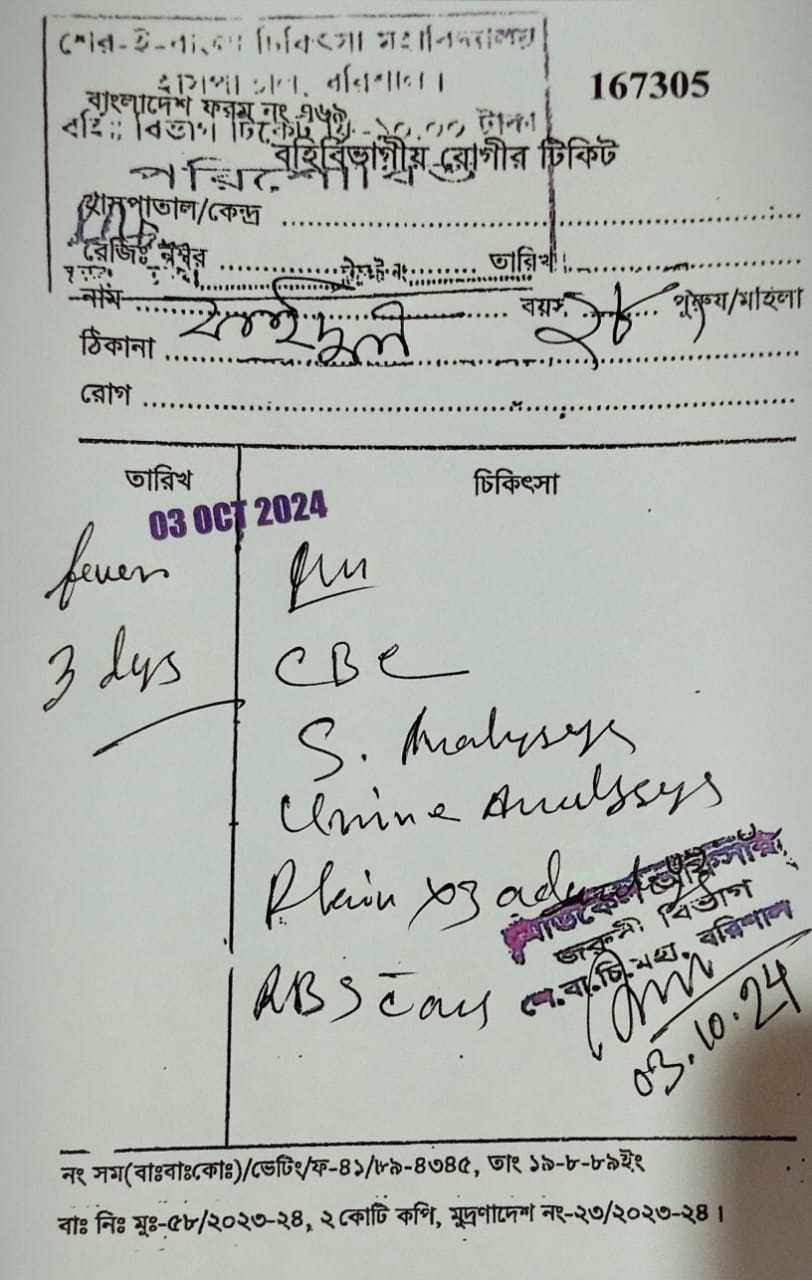 শের-ই-বাংলা চিকিৎসা মহাবিদ্যালয়
হাসপাতাল, বরিশাল।
167305
বাংলাদেশ ফরম নং ৭৬৯
বহিঃ বিভাগ টিকেট ফি -১০.০০ টাকা
বহির্বিভাগীয় রোগীর টিকিট
হাসপাতাল/কেন্দ্র
রেজিঃ নম্বর তারিখ
নাম বয়স ২৮ পুরুষ/মহিলা
ঠিকানা
রোগ
তারিখ চিকিৎসা
03 OCT 2024
fever
3 dys
CBC
S. Analysys
Urine Analysys
Plain
RBS
মেডিকেল অফিসার
জরুরী বিভাগ
শে.বা.চি.মহা. বরিশাল
03.10.24
নং সম(বাঃবাঃকোঃ)/ভেটিং/ফ-৪১/৮৯-৪৩৪৫, তাং ১৯-৮-৮৯ইং
বাঃ নিঃ মুঃ-৫৮/২০২৩-২৪, ২ কোটি কপি, মুদ্রণাদেশ নং-২৩/২০২৩-২৪।